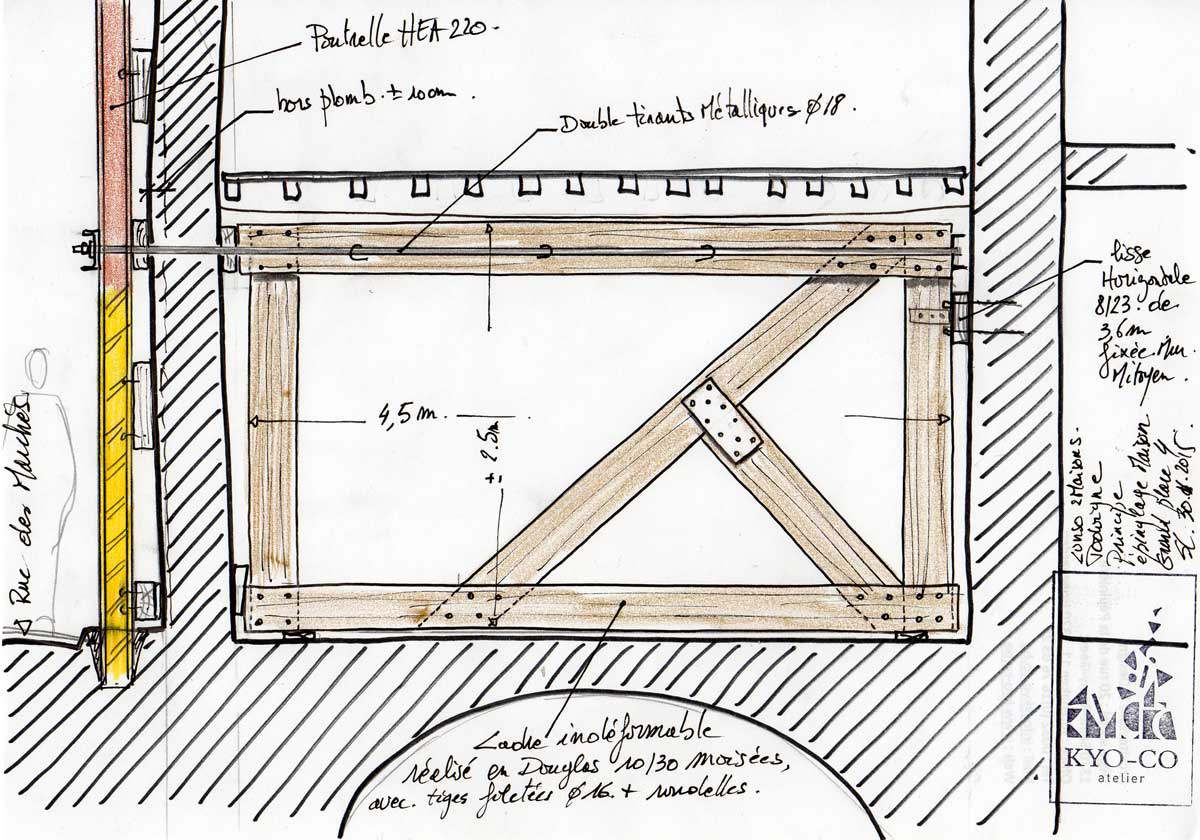 Poutrelle HEA 220.
hors plomb. ± 10cm.
Double tirants Métalliques ø18.
lisse
Horizontale
8/23. de
3,6m
fixée. Mur.
Mitoyen.
4,5 m.
± 2.5m
Rue des
2 Maisons.
Principe
épinglage Maison
Grand place 4
Cadre indéformable
réalisé en Douglas 10/30 moisées,
avec. tiges filetées ø16. + rondelles.
KYO-CO
atelier